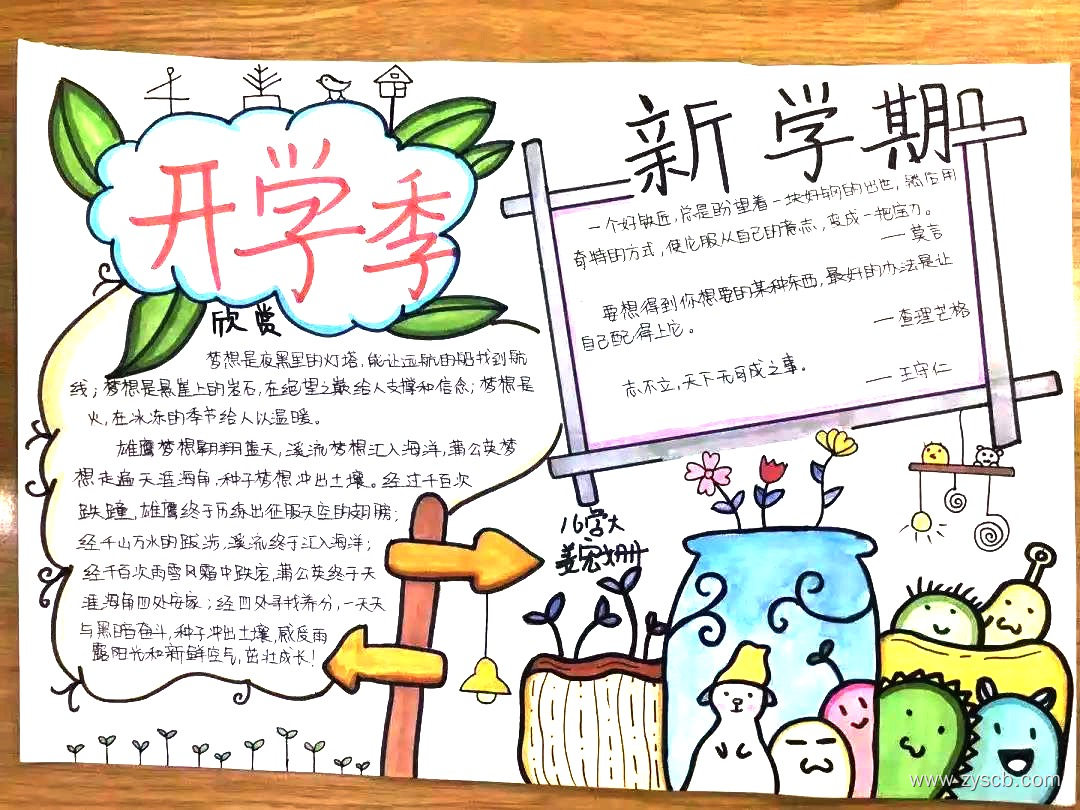 开学季
欣赏
梦想是夜黑里的灯塔，能让远航的船找到航
线；梦想是悬崖上的岩石，在绝望之巅给人支撑和信念；梦想是
火，在冰冻的季节给人以温暖。
雄鹰梦想翱翔蓝天，溪流梦想汇入海洋，蒲公英梦
想走遍天涯海角，种子梦想冲出土壤。经过千百次
跌撞，雄鹰终于历练出征服天空的翅膀；
经千山万水的跋涉，溪流终于汇入海洋；
经千百次雨雪风霜中跌宕，蒲公英终于天
涯海角四处安家；经四处寻找养分，一天天
与黑暗奋斗，种子冲出土壤，感受雨
露阳光和新鲜空气，茁壮成长！
新学期
一个好铁匠，总是盼望着一块好钢的出世，然后用
奇特的方式，使它服从自己的意志，变成一把宝刀。
——莫言
要想得到你想要的某种东西，最好的办法是让
自己配得上它。
——查理芒格
志不立，天下无可成之事。
——王守仁
www.zyscb.com